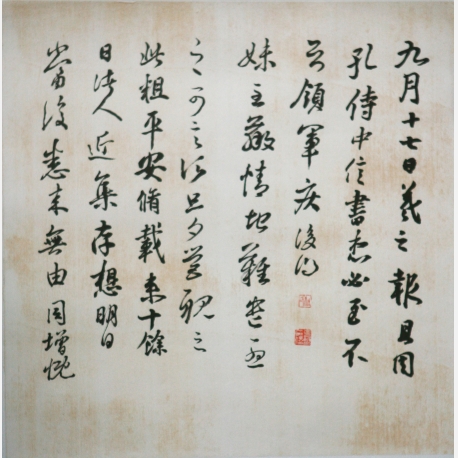 九月十七日羲之報且因
孔侍中信書想必至不
知領軍疾後問
妹至羸情地難遣憂
之可言須旦夕營視之
此粗平安脩載來十餘
日諸人近集存想明日
當復悉來無由同增慨